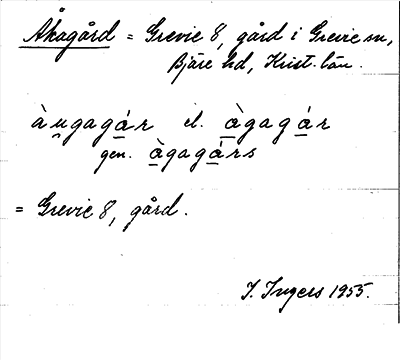 Åkagård = Grevie 8, gård i Grevie sn,
Bjäre hd, Krist. län.
àu̯gagár el. àgagár
gen. àgagárs
= Grevie 8, gård.
I. Ingers 1955.